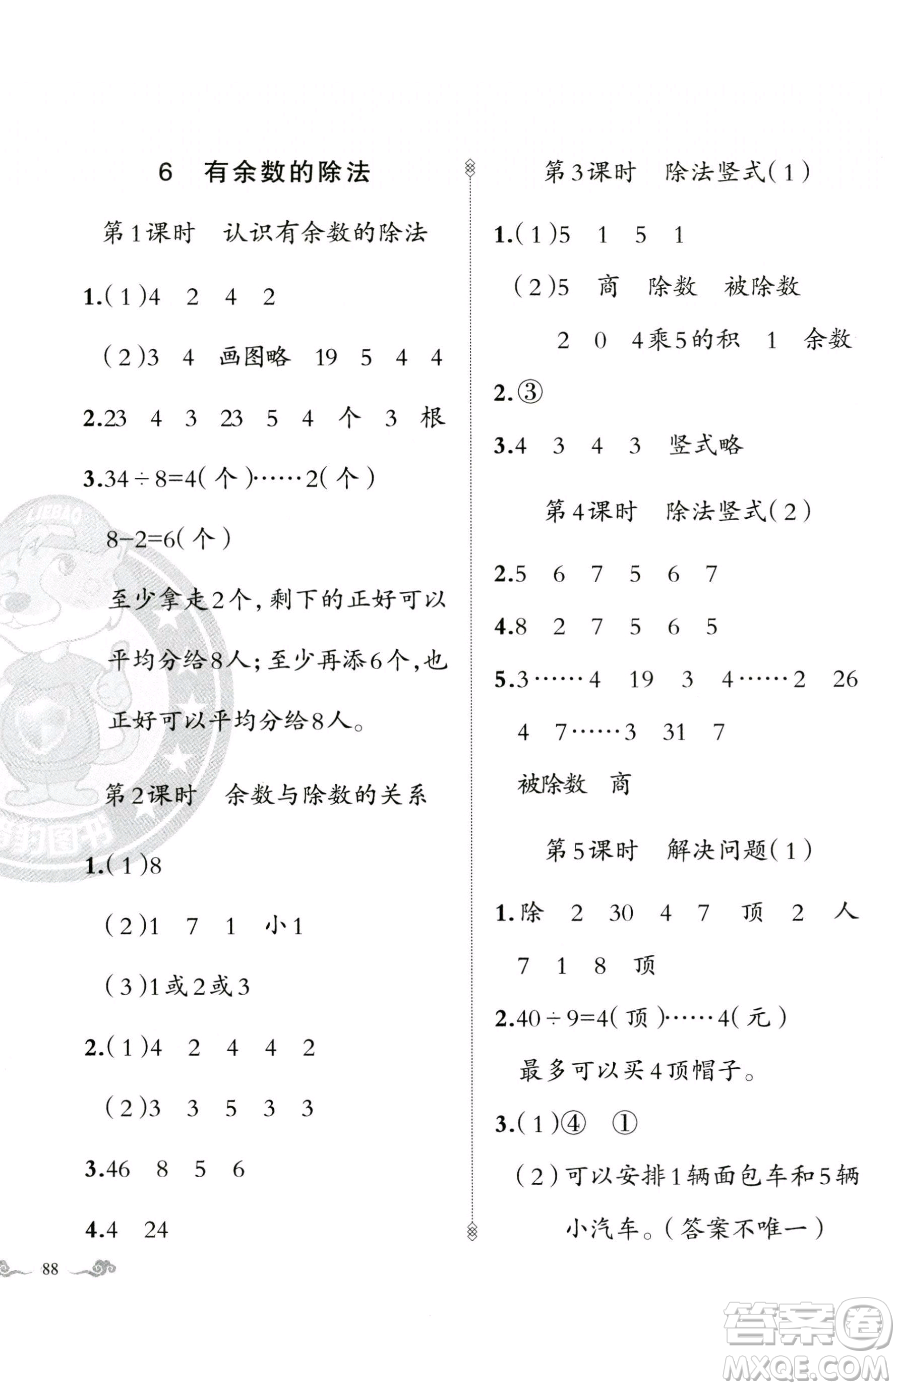 6 有余数的除法
第1课时 认识有余数的除法
1.(1)4 2 4 2
(2)3 4 画图略 19 5 4 4
2.23 4 3 23 5 4 个 3 根
3.34÷8=4(个)……2(个)
8-2=6(个)
至少拿走2个,剩下的正好可以
平均分给8人;至少再添6个,也
正好可以平均分给8人。
第2课时 余数与除数的关系
1.(1)8
(2)1 7 1 小1
(3)1或2或3
2.(1)4 2 4 4 2
(2)3 3 5 3 3
3.46 8 5 6
4.4 24
88
LIEBAO
猎豹图书
第3课时 除法竖式(1)
1.(1)5 1 5 1
(2)5 商 除数 被除数
2 0 4乘5的积 1 余数
2.③
3.4 3 4 3 竖式略
第4课时 除法竖式(2)
2.5 6 7 5 6 7
4.8 2 7 5 6 5
5.3……4 19 3 4……2 26
4 7……3 31 7
被除数 商
第5课时 解决问题(1)
1.除 2 30 4 7 顶 2 人
7 1 8 顶
2.40÷9=4(顶)……4(元)
最多可以买4顶帽子。
3.(1)④ ①
(2)可以安排1辆面包车和5辆
小汽车。(答案不唯一)
答案圈
MXQE.COM